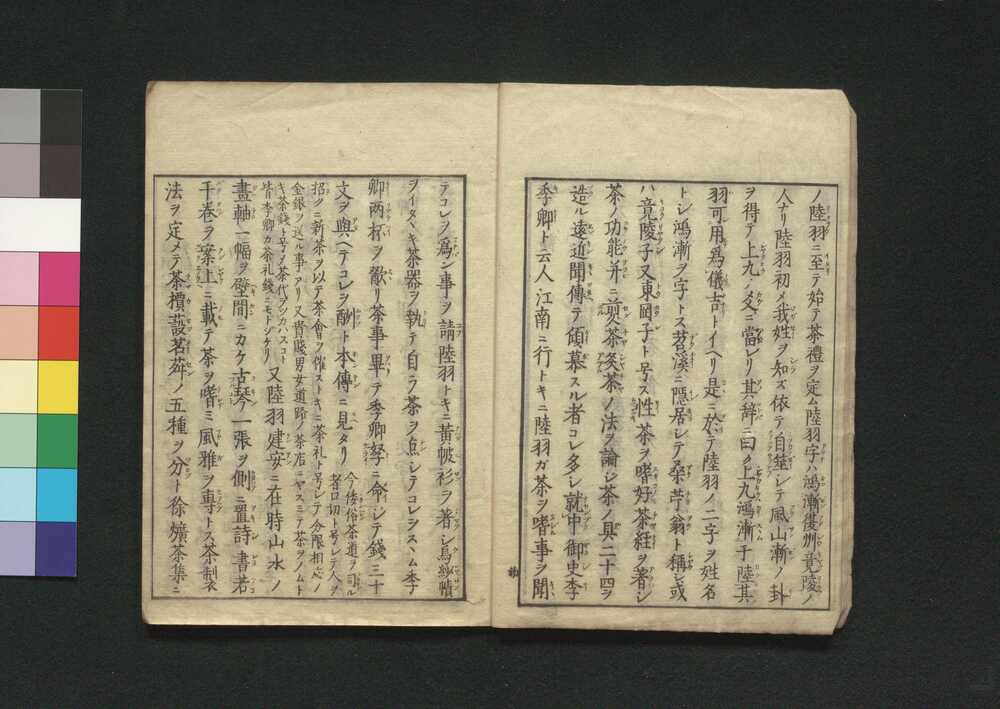 ノ陸羽ニ至テ始テ茶禮ヲ定ム陸羽字ハ鴻漸復州竟陵ノ
人ナリ陸羽初メ我姓ヲ知ズ依テ自筮シテ風山漸ノ卦
ヲ得テ上九ノ爻ニ當レリ其辞ニ曰ク上九鴻漸于陸其
羽可用爲儀吉トイヘリ是ニ於テ陸羽ノ二字ヲ姓名
トシ鴻漸ヲ字トス苕溪ニ隠居シテ桑苧翁ト稱シ或
ハ竟陵子又東岡子ト号ス性茶ヲ嗜好茶経ヲ著シ
茶ノ功能并ニ煎茶炙茶ノ法ヲ論シ茶ノ具二十四ヲ
造ル遠近聞傳テ傾慕スル者コレ多シ就中御史李
季卿ト云人江南ニ行トキニ陸羽ガ茶ヲ嗜事ヲ聞
テコレヲ為ン事ヲ請陸羽トキニ黄帔衫ヲ著シ烏紗幘
ヲイタヽキ茶器ヲ執テ自ラ茶ヲ点シテコレヲスヽム李
卿両杯ヲ歠リ茶事畢テ季卿孥ニ命シテ銭三十
文ヲ與ヘテコレヲ酬ト本傳ニ見タリ
今倭俗茶道ヲ司ル
者口切ト号シテ人ヲ
招クニ新茶ヲ以テ茶會ヲ催ストキニ茶礼ト号シテ分限相応ノ
金銀ヲ送ル事アリ又貴賤男女道路ノ茶店ニヤスミテ茶ヲノムト
キ茶銭ト号メ茶代ヲツカハスコト
皆李卿カ茶礼銭ニモトツケリ
又陸羽建安ニ在時山水ノ
畫軸一幅ヲ壁間ニカケ古琴一張ヲ側ニ置詩書若
干巻ヲ案上ニ載テ茶ヲ嗜ミ風雅ヲ專トス茶製
法ヲ定メテ茶檟蔎茗荈ノ五種ヲ分ト徐爌茶集ニ